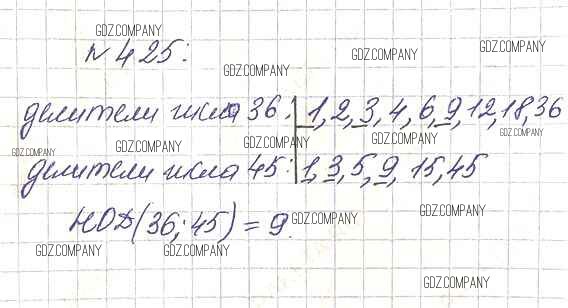 GDZ.COMPANY
GDZ.COMPANY
№425:
GDZ.COMPANY
GDZ.COMPANY
делители числа 36: 1, 2, 3, 4, 6, 9, 12, 18, 36
GDZ.COMPANY
GDZ.COMPANY
GDZ.COMPANY
GDZ.COMPANY
GDZ.COMPANY
делители числа 45: 1, 3, 5, 9, 15, 45
GDZ.COMPANY
НОД(36; 45) = 9.
GDZ.COMPANY
GDZ.COMPANY
GDZ.COMPANY
GDZ.COMPANY
GDZ.COMPANY